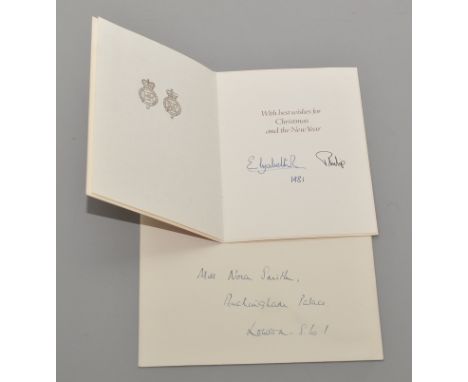 With best wishes for
Christmas
and the New Year
Elizabeth R Philip
1981
Miss Nora Smith,
Buckingham Palace
London. S.W.1